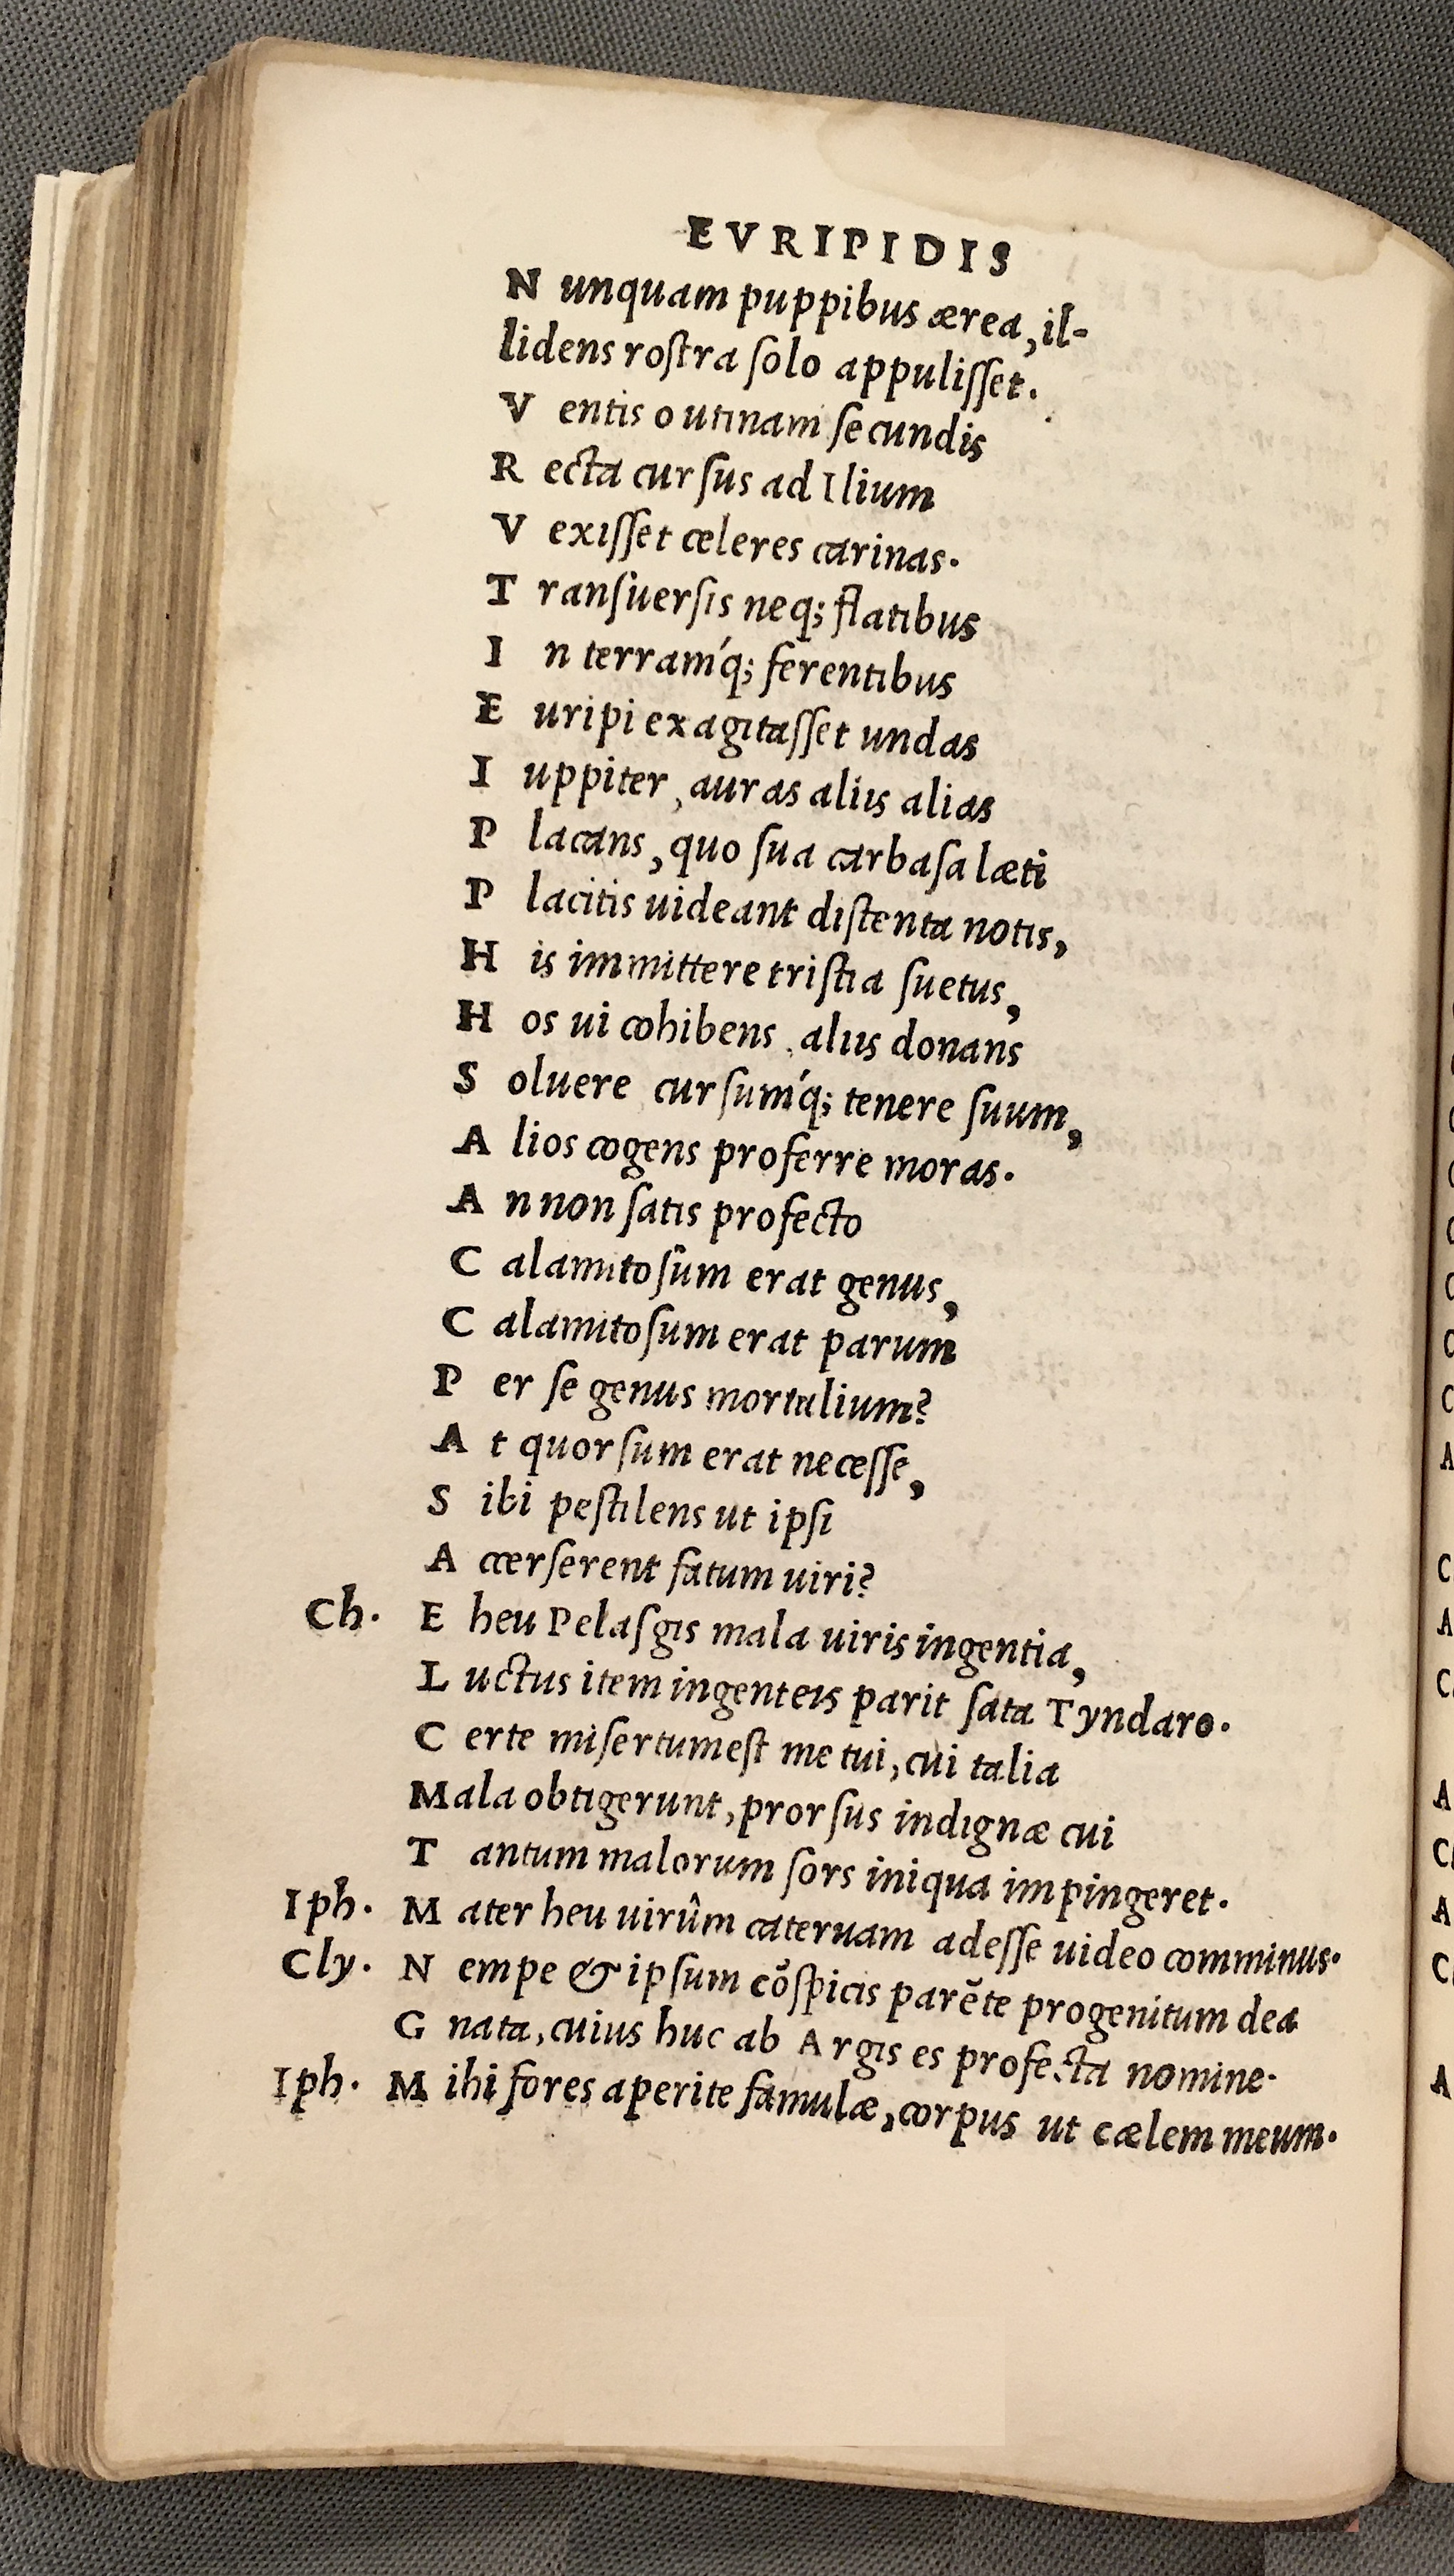 EVRIPIDIS
N unquam puppibus ærea, il-
lidens roſtra ſolo appuliſſet.
V entis o utinam ſecundis
R ecta curſus ad Ilium
V exiſſet celeres carinas.
T ranſuerſis neq; flatibus
I n terramq́; ferentibus
E uripi exagitaſſet undas
I uppiter, auras aliis alias
P lacans, quo ſua carbaſa læti
P lacitis uideant diſtenta notis,
H is immittere triſtia ſuetus,
H os ui cohibens, aliis donans
S oluere curſumq́; tenere ſuum,
A lios cogens proferre moras.
A n non ſatis profecto
C alamitoſum erat genus,
C alamitoſum erat parum
P er ſe genus mortalium?
A t quorſum erat neceſſe,
S ibi peſtilens ut ipſi
A ccerſerent fatum uiri?
Ch. E heu Pelaſgis mala uiris ingentia,
L uctus item ingenteis parit ſata Tyndaro.
C erte miſertumeſt me tui, cui talia
Mala obtigerunt, prorſus indignæ cui
T antum malorum ſors iniqua impingeret.
Iph. M ater heu uirûm cateruam adeſſe uideo comminus.
Cly. N empe & ipſum cõſpicis parẽte progenitum dea
G nata, cuius huc ab Argis es profecta nomine.
Iph. M ihi fores aperite famulæ, corpus ut cælem meum.